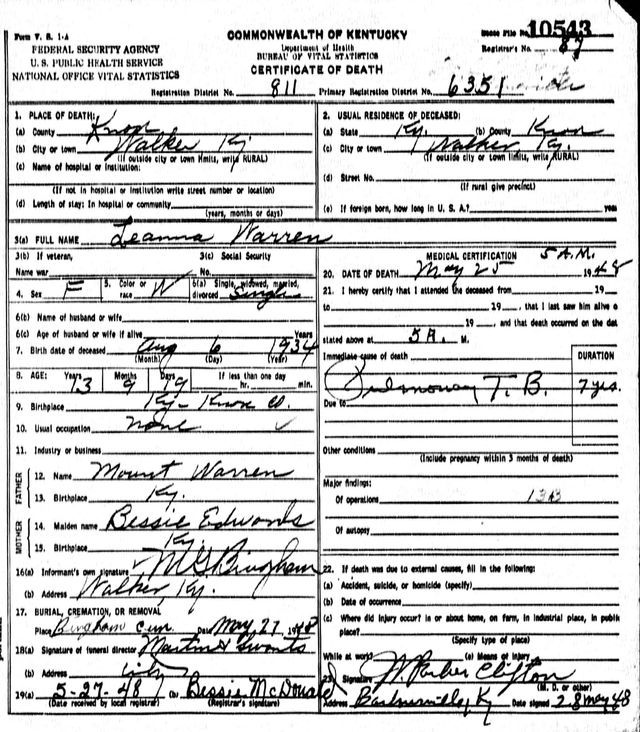 Form V. S. 1-A
FEDERAL SECURITY AGENCY
U. S. PUBLIC HEALTH SERVICE
NATIONAL OFFICE VITAL STATISTICS
COMMONWEALTH OF KENTUCKY
Department of Health
BUREAU OF VITAL STATISTICS
CERTIFICATE OF DEATH
File No. 10543
Registrar's No. 87
Registration District No. 811 Primary Registration District No. 6351
1. PLACE OF DEATH:
(a) County Knox
(b) City or town Walker Ky.
(If outside city or town limits, write RURAL)
(c) Name of hospital or institution:
(If not in hospital or institution write street number or location)
(d) Length of stay: In hospital or community
(years, months or days)
2. USUAL RESIDENCE OF DECEASED:
(a) State Ky. (b) County Knox
(c) City or town Walker Ky.
(If outside city or town limits, write RURAL)
(d) Street No.
(If rural give precinct)
(e) If foreign born, how long in U. S. A.? years
3(a) FULL NAME Leanna Warren
3(b) If veteran,
Name war
3(c) Social Security
No.
4. Sex F
5. Color or race W
6(a) Single, widowed, married, divorced Single
6(b) Name of husband or wife
6(c) Age of husband or wife if alive Years
7. Birth date of deceased Aug 6 1934
(Month) (Day) (Year)
8. AGE: Years 13 Months 9 Days 19 If less than one day hr. min.
9. Birthplace Ky - Knox Co.
10. Usual occupation none
11. Industry or business
FATHER
12. Name Mount Warren
13. Birthplace Ky.
MOTHER
14. Maiden name Bessie Edwards
15. Birthplace Ky.
16(a) Informant's own signature M G Bingham
(b) Address Walker Ky.
17. BURIAL, CREMATION, OR REMOVAL
Place Bingham Cem. Date May 27 1948
18(a) Signature of funeral director
(b) Address City
19(a) 5-27-48 (b) Bessie McDonald
(Date received by local registrar) (Registrar's signature)
MEDICAL CERTIFICATION 5 A.M.
20. DATE OF DEATH May 25 1948
21. I hereby certify that I attended the deceased from 19
to 19 , that I last saw him alive o
19 , and that death occurred on the dat
stated above at 5 A. M.
Immediate cause of death
DURATION
Pulmonary T. B. 7 yrs.
Due to
Other conditions
(Include pregnancy within 3 months of death)
Major findings:
Of operations
Of autopsy
22. If death was due to external causes, fill in the following:
(a) Accident, suicide, or homicide (specify)
(b) Date of occurrence
(c) Where did injury occur? in or about home, on farm, in industrial place, in public
place?
(Specify type of place)
While at work? (e) Means of injury
23. Signature W. Parker Clifton
(M. D. or other)
Address Barbourville, Ky Date signed 28 May 48